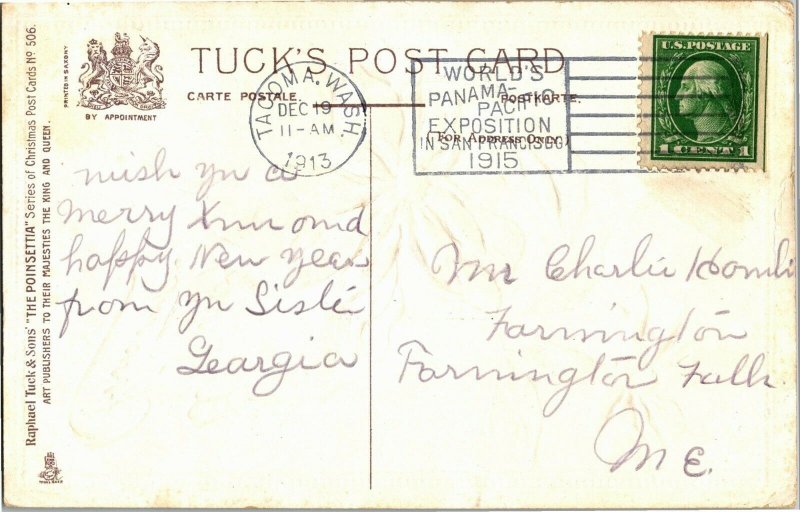 TUCK'S POST CARD
CARTE POSTALE
POSTKARTE.
FOR ADDRESS ONLY
BY APPOINTMENT
PRINTED IN SAXONY
Raphael Tuck & Sons' "THE POINSETTIA" Series of Christmas Post Cards Nº 506.
ART PUBLISHERS TO THEIR MAJESTIES THE KING AND QUEEN.
TACOMA, WASH.
DEC 19
11-AM
1913
WORLD'S
PANAMA-
PACIFIC
EXPOSITION
IN SAN FRANCISCO
1915
U.S. POSTAGE
1 CENT 1
wish yu a
merry Xmas and
happy New year
from yu Sister
Geargia
Mr Charlie
Farmington
Farmington Falls
Me.